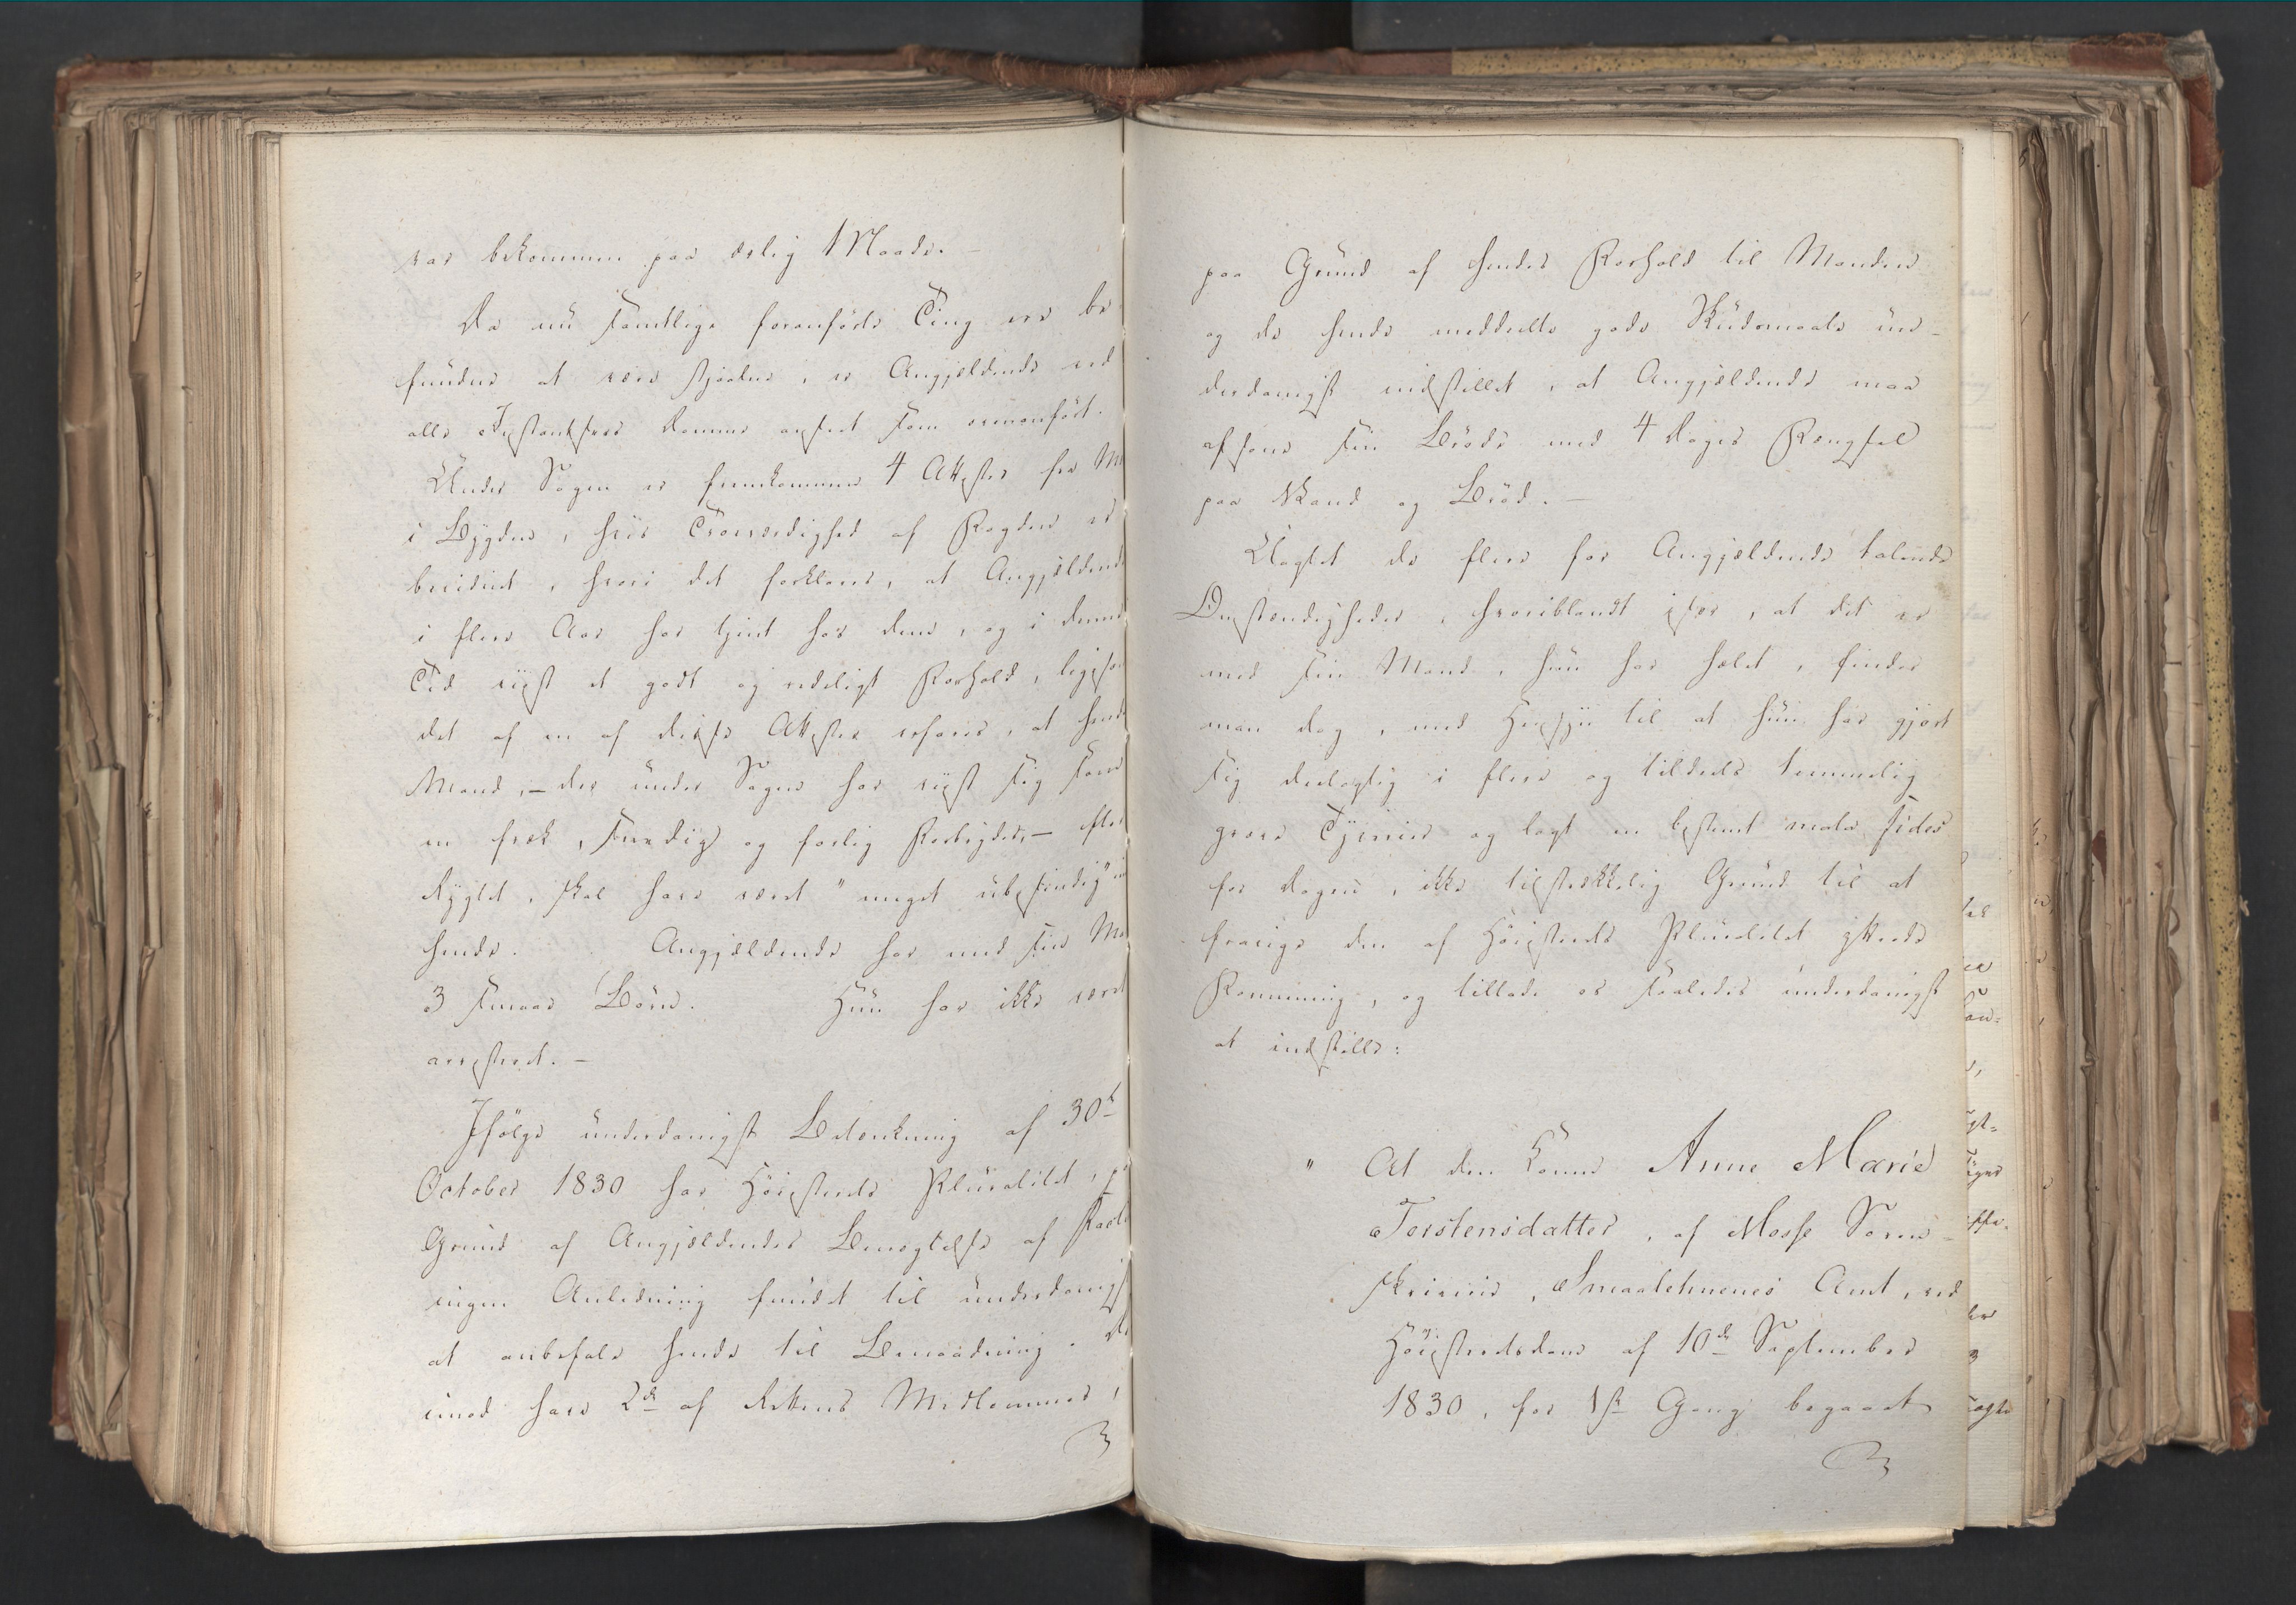 var bekommen paa ærlig Maade. –
Da nu samtlige foranførte Ting ere be
fundne at være stjaalne, er Angjældende ved
alle Instantsers Domme anseet som ovenanført.
Under Sagen er fremkommen 4 Attester fra Mæ
i Bygden, hvis Troværdighed af Fogden er
bevidnet, hvori det forklares, at Angjældende
i flere Aar har tjent hos dem, og i denne
Tid viist et godt og redeligt Forhold, ligesom
det af en af disse Attester erfares, at hendes
Mand, – der under Sagen har viist sig som
en fræk, snedig og farlig Forbryder, – efter
Rygtet, skal have været "meget ubesindig" i
hende. Angjældende har med sin Ma
3 smaae Børn. Hun har ikke været
arresteret. –
Ifølge underdanigst Betænkning af 30te
October 1830 har Høiesterets Pluralitet, p
Grund af Angjældendes Benægtelse af Facta
ingen Anledning fundet til underdanigst
at anbefale hende til Benaadning. De
imod have 2de af Rettens Medlemmer,
paa Grund af hendes Forhold til Manden
og de hende meddeelte gode Skudsmaale un-
derdanigst indstillet, at Angjældende maa
afsone sin Brøde med 4 Dages Fængsel
paa Vand og Brød. –
Uagtet de flere for Angjældende talende
Omstændigheder, hvoriblandt især, at det er
med sin Mand, hun har hælet, finder
man dog, med Hensyn til at hun har gjort
sig deelagtig i flere og tildeels temmelig
grove Tyverier og lagt en bestemt mala fides
for Dagen, ikke tilstrækkelig Grund til at
fravige den af Høiesterets Pluralitet yttrede
Formening, og tillade os saaledes underdanigst
at indstille:
" At den Kone Anne Marie
Torstensdatter, af Mosse Soren-
skriverie, Smaalehnenes Amt, ved
Høiesteretsdom af 10de September
1830, for 1ste Gang begaaet